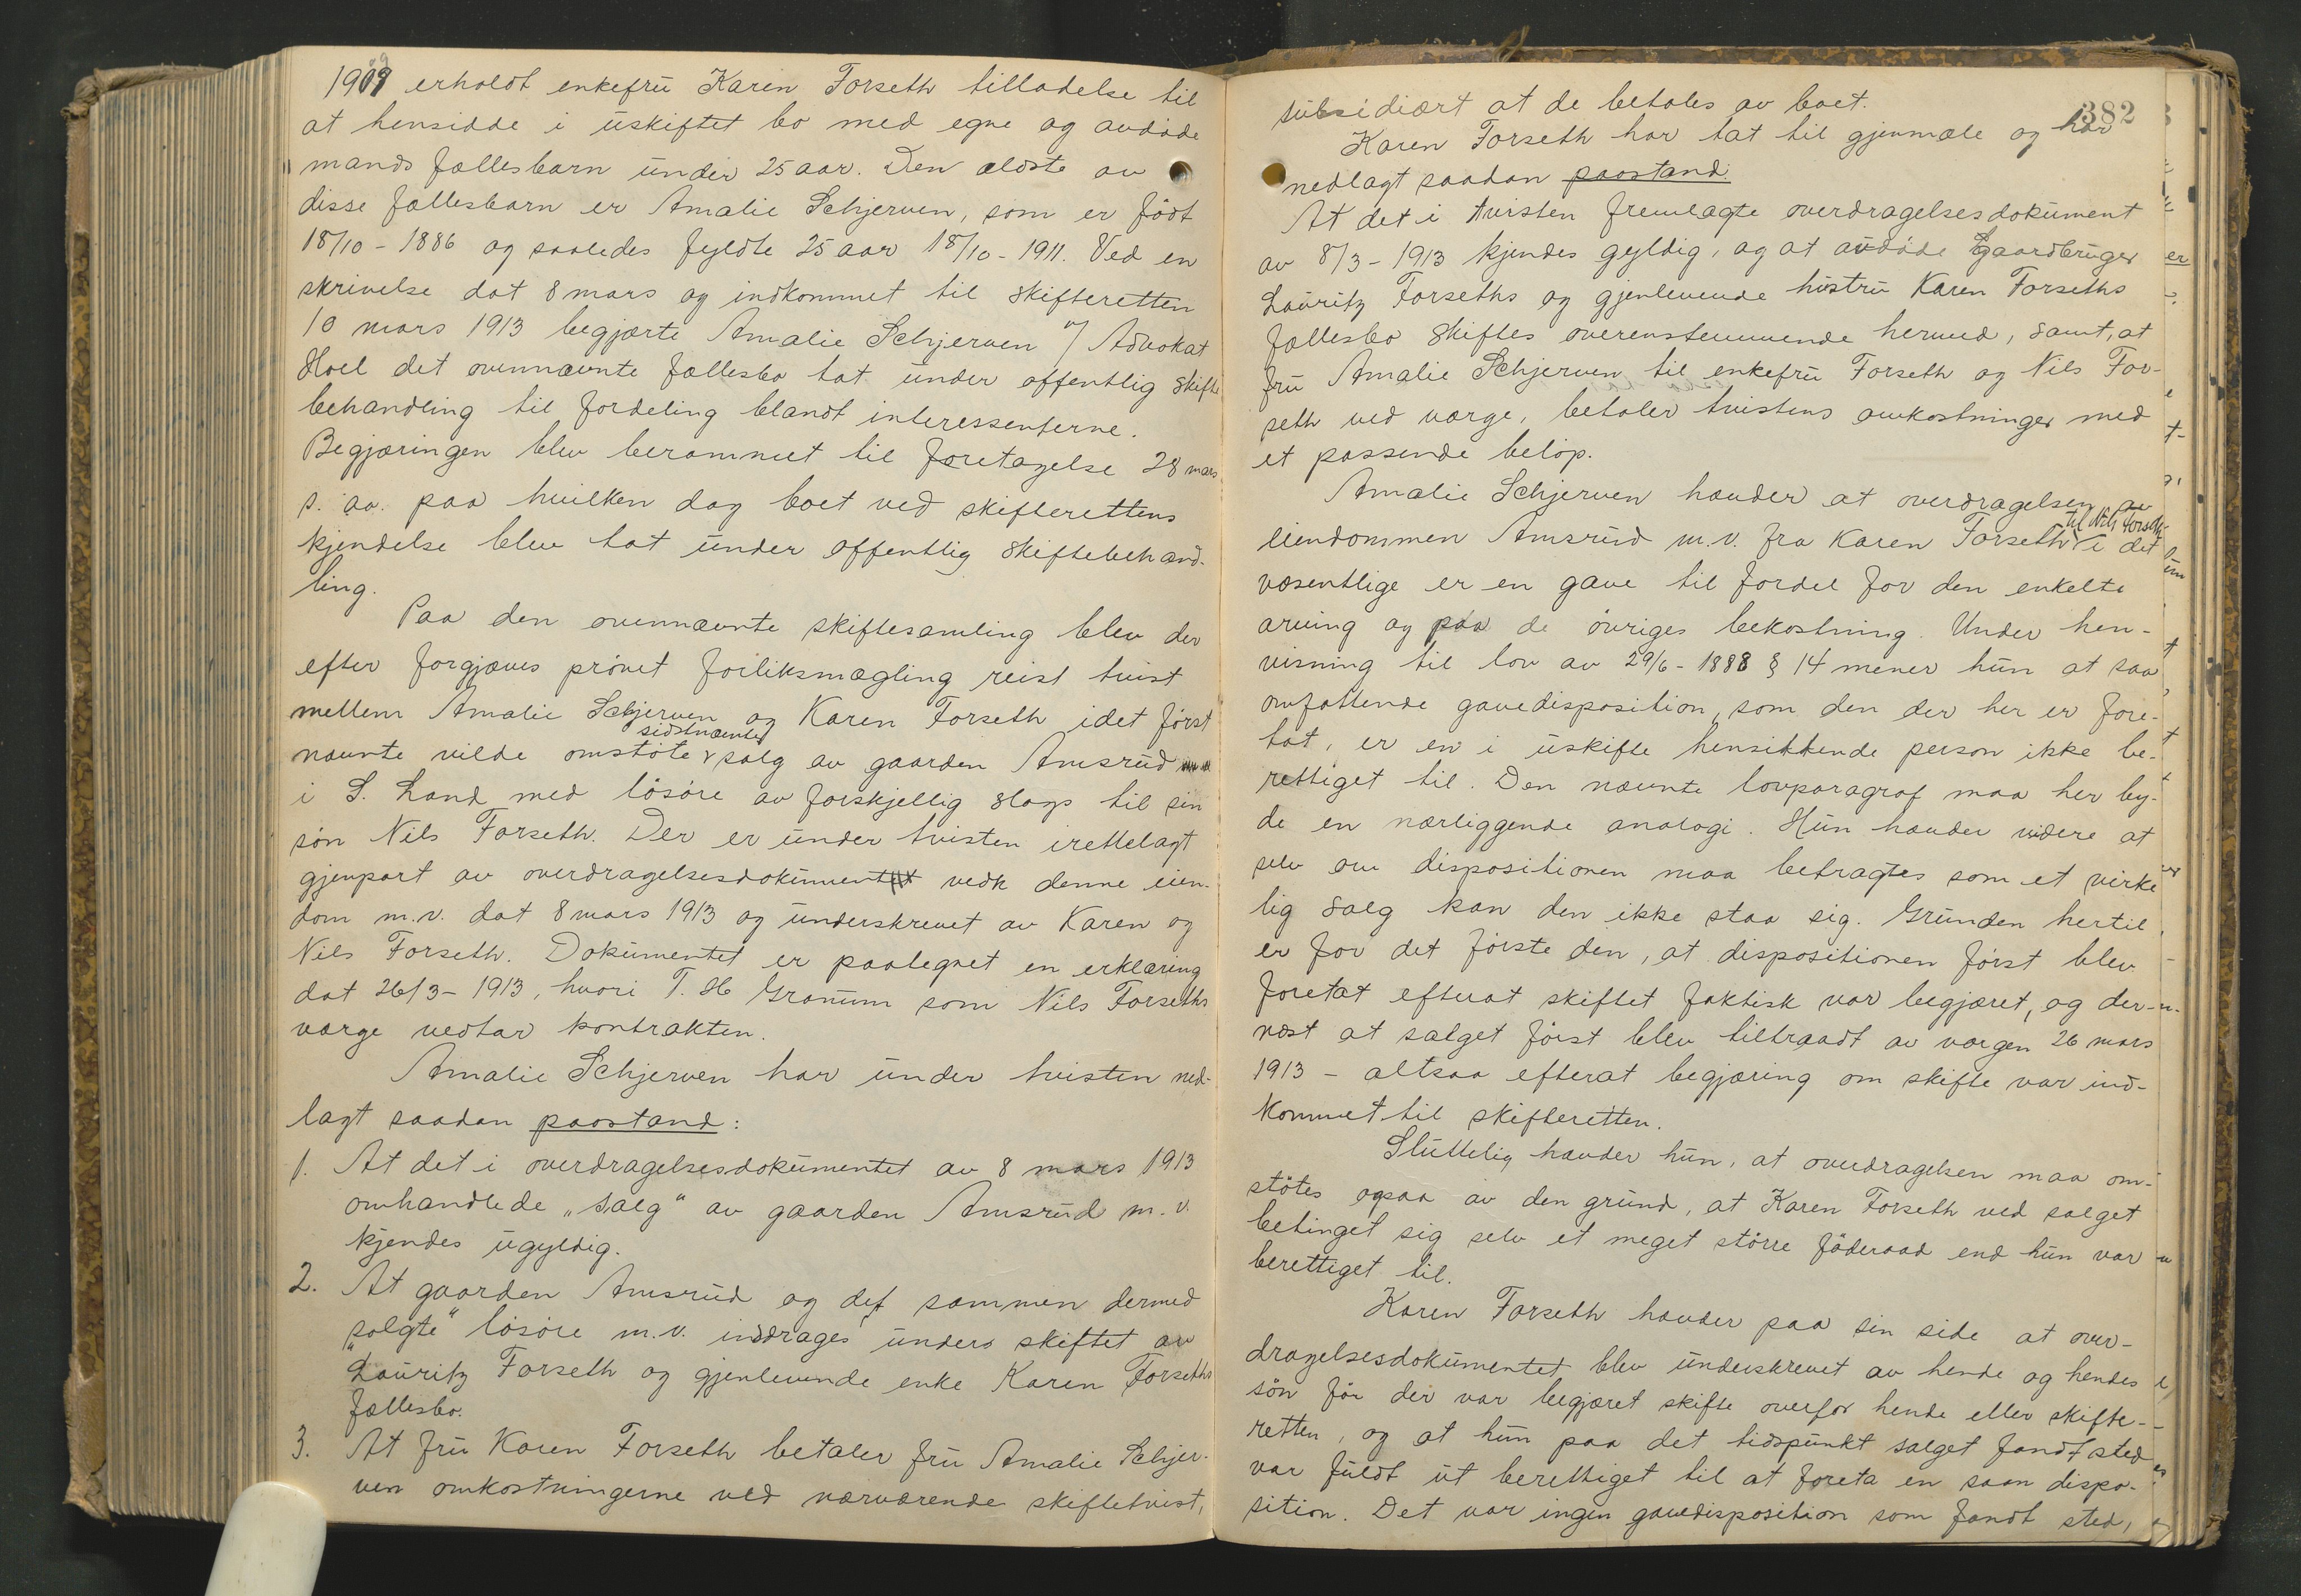 1909 erholdt enkefru Karen Forseth tilladelse til
at hensidde i uskiftet bo med egne og avdöde
mands fællesbarn under 25 aar. Den ældste av
disse fællesbarn er Amalie Schjerven, som er född
18/10 - 1886 og saaledes fyldte 25 aar 18/10 - 1911. Ved en
skrivelse dat 8 mars og indkommet til skifteretten
10 mars 1913 begjærte Amalie Schjerven v/ Advokat
Hoel det ovennævnte fællesbo tat under offentlig skifte
behandling til fordeling blandt interessenterne.
Begjæringen blev berammet til foretagelse 28 mars
s. aa. paa hvilken dag boet ved skifterettens
kjendelse blev tat under offentlig skiftebehand-
ling.
Paa den ovennævnte skiftesamling blev der
efter forgjæves prövet forliksmægling reist tvist
mellem Amalie Schjerven og Karen Forseth idet först
nævnte vilde omstöte sidstnævntes salg av gaarden Amsrud
i S. Land med lösöre av forskjellig slags til sin
sön Nils Forseth. Der er under tvisten irettelagt
gjenpart av overdragelsesdokument vedk denne eien-
dom m.v. dat 8 mars 1913 og underskrevet av Karen og
Nils Forseth. Dokumentet er paategnet en erklæring
dat 26/3 - 1913, hvori T. H. Granum som Nils Forseths
værge vedtar kontrakten.
Amalie Schjerven har under tvisten ned-
lagt saadan paastand:
1. At det i overdragelsesdokumentet av 8 mars 1913
omhandlede „salg“ av gaarden Amsrud m.v.
kjendes ugyldig.
2. At gaarden Amsrud og det sammen dermed
„solgte“ lösöre m.v. inddrages under skiftet av
Lauritz Forseth og gjenlevende enke Karen Forseths
fællesbo.
3. At fru Karen Forseth betaler fru Amalie Schjer-
ven omkostningerne ved nærværende skiftetvist,
382
subsidiært at de betales av boet.
Karen Forseth har tat til gjenmæle og har
nedlagt saadan paastand:
At det i tvisten fremlagte overdragelsesdokument
av 8/3 - 1913 kjendes gyldig, og at avdöde gaardbruger
Lauritz Forseths og gjenlevende hustru Karen Forseths
fællesbo skiftes overenstemmende hermed, samt, at
fru Amalie Schjerven til enkefru Forseth og Nils For-
seth ved værge, betaler tvistens omkostninger med
et passende belöp.
Amalie Schjerven hævder at overdragelsen av
eiendommen Amsrud m.v. fra Karen Forseth til Nils Forseth i det
væsentlige er en gave til fordel for den enkelte
arving og paa de övriges bekostning. Under hen-
visning til lov av 29/6 - 1888 § 14 mener hun at saa
omfattende gavedisposition, som den der her er fore-
tat, er en i uskifte hensittende person ikke be-
rettiget til. Den nævnte lovparagraf maa her by-
de en nærliggende analogi. Hun hævder videre at
selv om dispositionen maa betragtes som et virke
lig salg kan den ikke staa sig. Grunden hertil
er for det förste den, at dispositionen först blev
foretat efterat skiftet faktisk var begjæret, og der-
næst at salget först blev tiltraadt av værgen 26 mars
1913 - altsaa efterat begjæring om skifte var ind-
kommet til skifteretten.
Sluttelig hævder hun, at overdragelsen maa om-
stötes ogsaa av den grund, at Karen Forseth ved salget
betinget sig selv et meget större föderaad end hun var
berettiget til.
Karen Forseth hævder paa sin side at over-
dragelsesdokumentet blev underskrevet av hende og hendes
sön för der var begjæret skifte overfor hende eller skifte-
retten, og at hun paa det tidspunkt salget fandt sted
var fuldt ut berettiget til at foreta en saan dispo-
sition. Det var ingen gavedisposition som fandt sted,